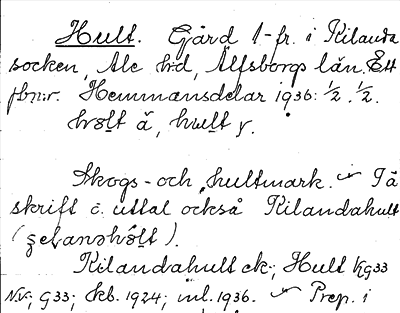 Hult. Gård 1-fr. i Kilanda
socken, Ale hd, Älfsborgs län. Ett
fbnr. Hemmansdelar 1936: 1/2. 1/2.
hult y.
Skogs- och hultmark. På
skrift o. uttal också Kilandahult
Kilandahult ek.; Hult
G33; 1924; inl. 1936. Prep. i